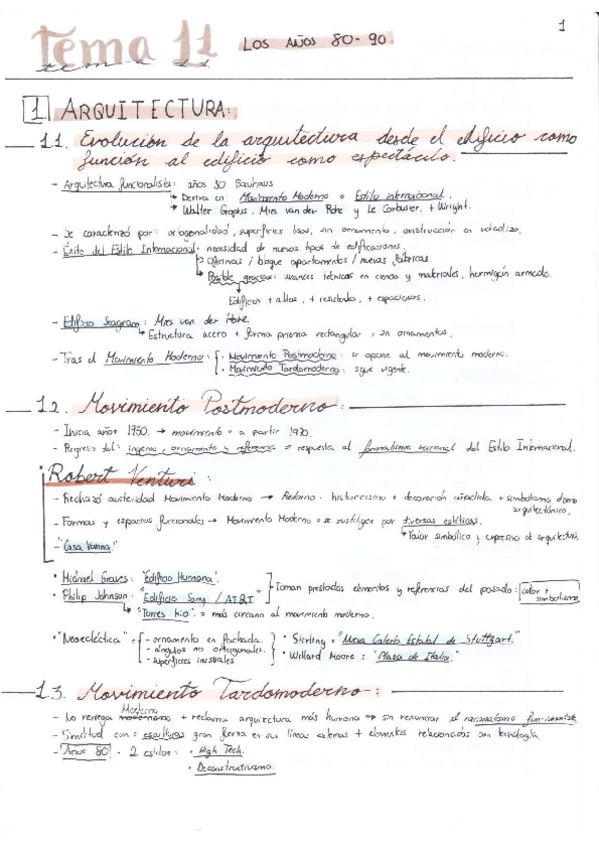 1
Tema 11 LOS AÑOS 80-90.
1 ARQUITECTURA:
1.1. Evolución de la arquitectura desde el edificio como
función al edificio como espectáculo.
- Arquitectura funcionalista: años 30 Bauhaus
Deriva en: Movimiento Moderno o Estilo internacional.
Walter Gropius, Mies van der Rohe y Le Corbusier. + Wright.
- Se caracterizó por: ortogonalidad, superficies lisas, sin ornamento, construcción en voladizo.
- Éxito del Estilo Internacional: necesidad de nuevos tipos de edificaciones.
Oficinas / bloque apartamentos / nuevas fábricas.
Posible gracias: avances técnicos en ciencia y materiales, hormigón armado.
Edificios + altos, + resistente, + espaciosos.
- Edificio Seagram: Mies van der Rohe.
Estructura acero + forma prisma rectangular, sin ornamentos.
- Tras el Movimiento Moderno: · Movimiento Postmoderno: se opone al movimiento moderno.
· Movimiento Tardomoderno: sigue vigente.
1.2. Movimiento Postmoderno:
- Inicia años 1950. → movimiento a partir 1970.
- Regreso del: ingenio, ornamento y referencia = respuesta al formalismo racional del Estilo Internacional.
Robert Venturi:
- Rechazó austeridad Movimiento Moderno → Retorno historicismo + decoración añadida + simbolismo arquitectónico.
- Formas y espacios funcionales → Movimiento Moderno se sustituyen por diversas estéticas.
Valor simbólico y expresivo de arquitectura.
- "Casa Vanna"
· Michael Graves: "Edificio Humana".
· Philip Johnson: "Edificio Sony / AT&T"
Toman prestados elementos y referencias del pasado: color + simbolismo
"Torres KIO" = más cercano al movimiento moderno.
· "Neoecléctica" - ornamento en fachada.
- ángulos no ortogonales.
- superficies inusuales
· Stirling: "Nueva Galería Estatal de Stuttgart."
· Willard Moore: "Plaza de Italia."
1.3. Movimiento Tardomoderno:
- No reniega Moderno + reclama arquitectura más humana → sin renunciar al racionalismo funcionalista
- Similitud con: esculturas gran fuerza en sus líneas externas + elementos relacionados con tecnología.
- Años 80 · 2 estilos: · High Tech.
· Deconstructivismo.